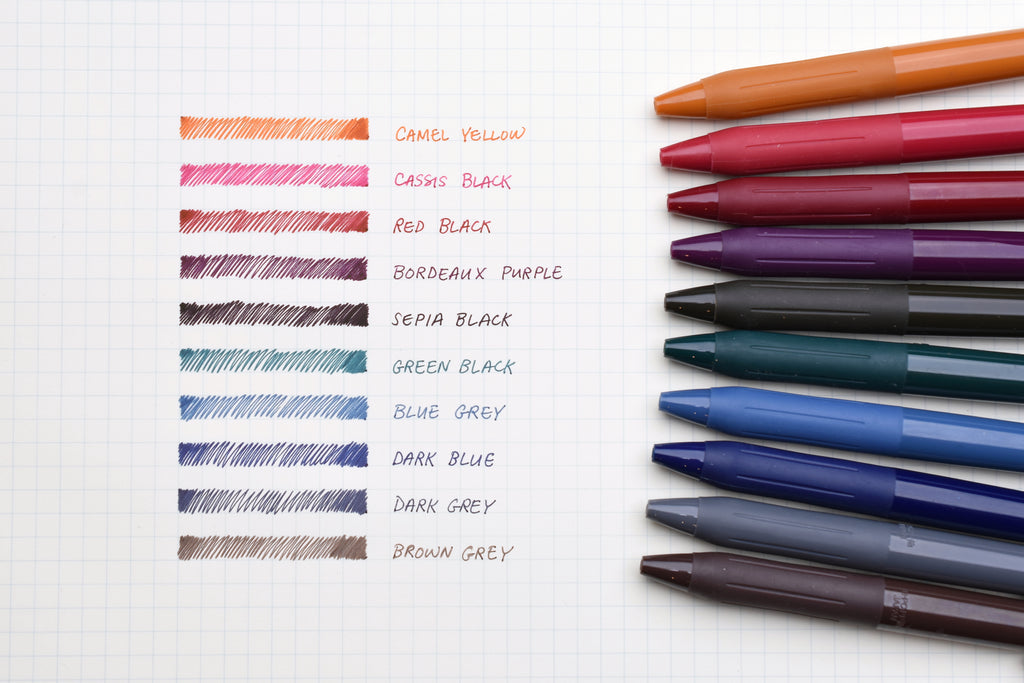 CAMEL YELLOW
CASSIS BLACK
RED BLACK
BORDEAUX PURPLE
SEPIA BLACK
GREEN BLACK
BLUE GREY
DARK BLUE
DARK GREY
BROWN GREY